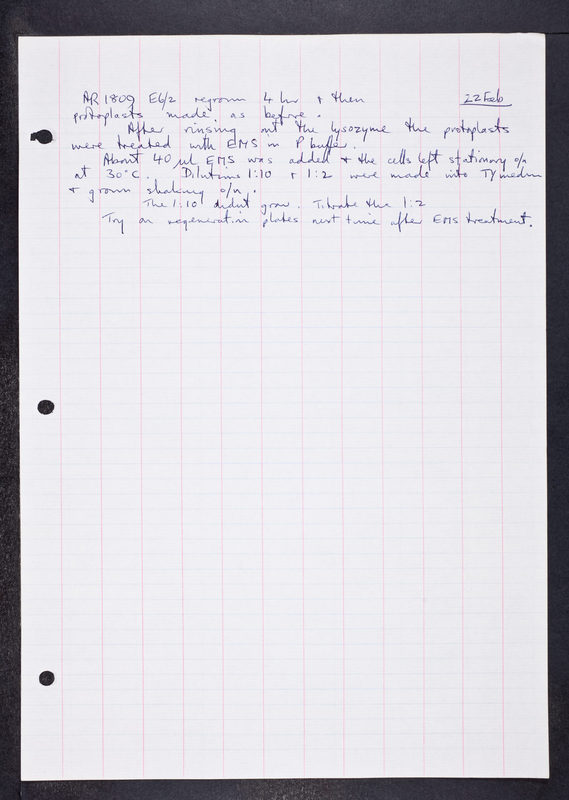 AR 1809 E6/2 regrown 4 hr + then 22 Feb
protoplasts made as before.
After rinsing out the lysozyme the protoplasts
were treated with EMS in P buffer.
About 40 µl EMS was added + the cells left stationary o/n
at 30°C. Dilutions 1:10 + 1:2 were made into TY medium
+ grown shaking o/n.
The 1:10 didnt grow. Titrate the 1:2
Try on regeneration plates next time after EMS treatment.